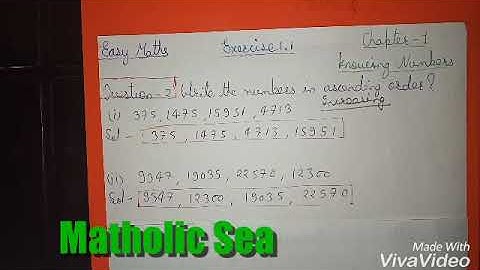 Easy Maths Exercise 1.1 Chapter-1
Knowing Numbers
Question-2) Write the numbers in ascending order?
Increasing
(i) 375, 1475, 15951, 4713
Sol- [375, 1475, 4713, 15951]
(ii) 9347, 19035, 22570, 12300
Sol- [9347, 12300, 19035, 22570]
Matholic Sea
Made With
VivaVideo